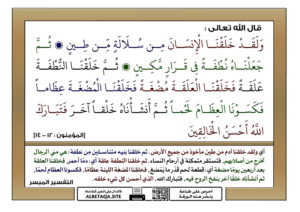 قال الله تعالى :
وَلَقَدْ خَلَقْنَا الْإِنسَانَ مِن سُلَالَةٍ مِّن طِينٍ ۝ ثُمَّ
جَعَلْنَاهُ نُطْفَةً فِي قَرَارٍ مَّكِينٍ ۝ ثُمَّ خَلَقْنَا النُّطْفَةَ
عَلَقَةً فَخَلَقْنَا الْعَلَقَةَ مُضْغَةً فَخَلَقْنَا الْمُضْغَةَ عِظَامًا
فَكَسَوْنَا الْعِظَامَ لَحْمًا ثُمَّ أَنشَأْنَاهُ خَلْقًا آخَرَ فَتَبَارَكَ
اللَّهُ أَحْسَنُ الْخَالِقِينَ
[المؤمنون : ١٢ - ١٤]
أي ولقد خلقنا آدم من طين مأخوذ من جميع الأرض. ثم خلقنا بنيه متناسلين من نطفة: هي مني الرجال
تخرج من أصلابهم، فتستقر متمكنة في أرحام النساء. ثم خلقنا النطفة علقة أي: دمًا أحمر، فخلقنا العلقة
بعد أربعين يومًا مضغة أي: قطعة لحم قدر ما يمضغ، فخلقنا المضغة اللينة عظامًا، فكسونا العظام لحمًا،
ثم أنشأناه خلقًا آخر بنفخ الروح فيه، فتبارك الله، الذي أحسن كل شيء خلقه.
التفسير الميسر
ALBETAQA.SITE